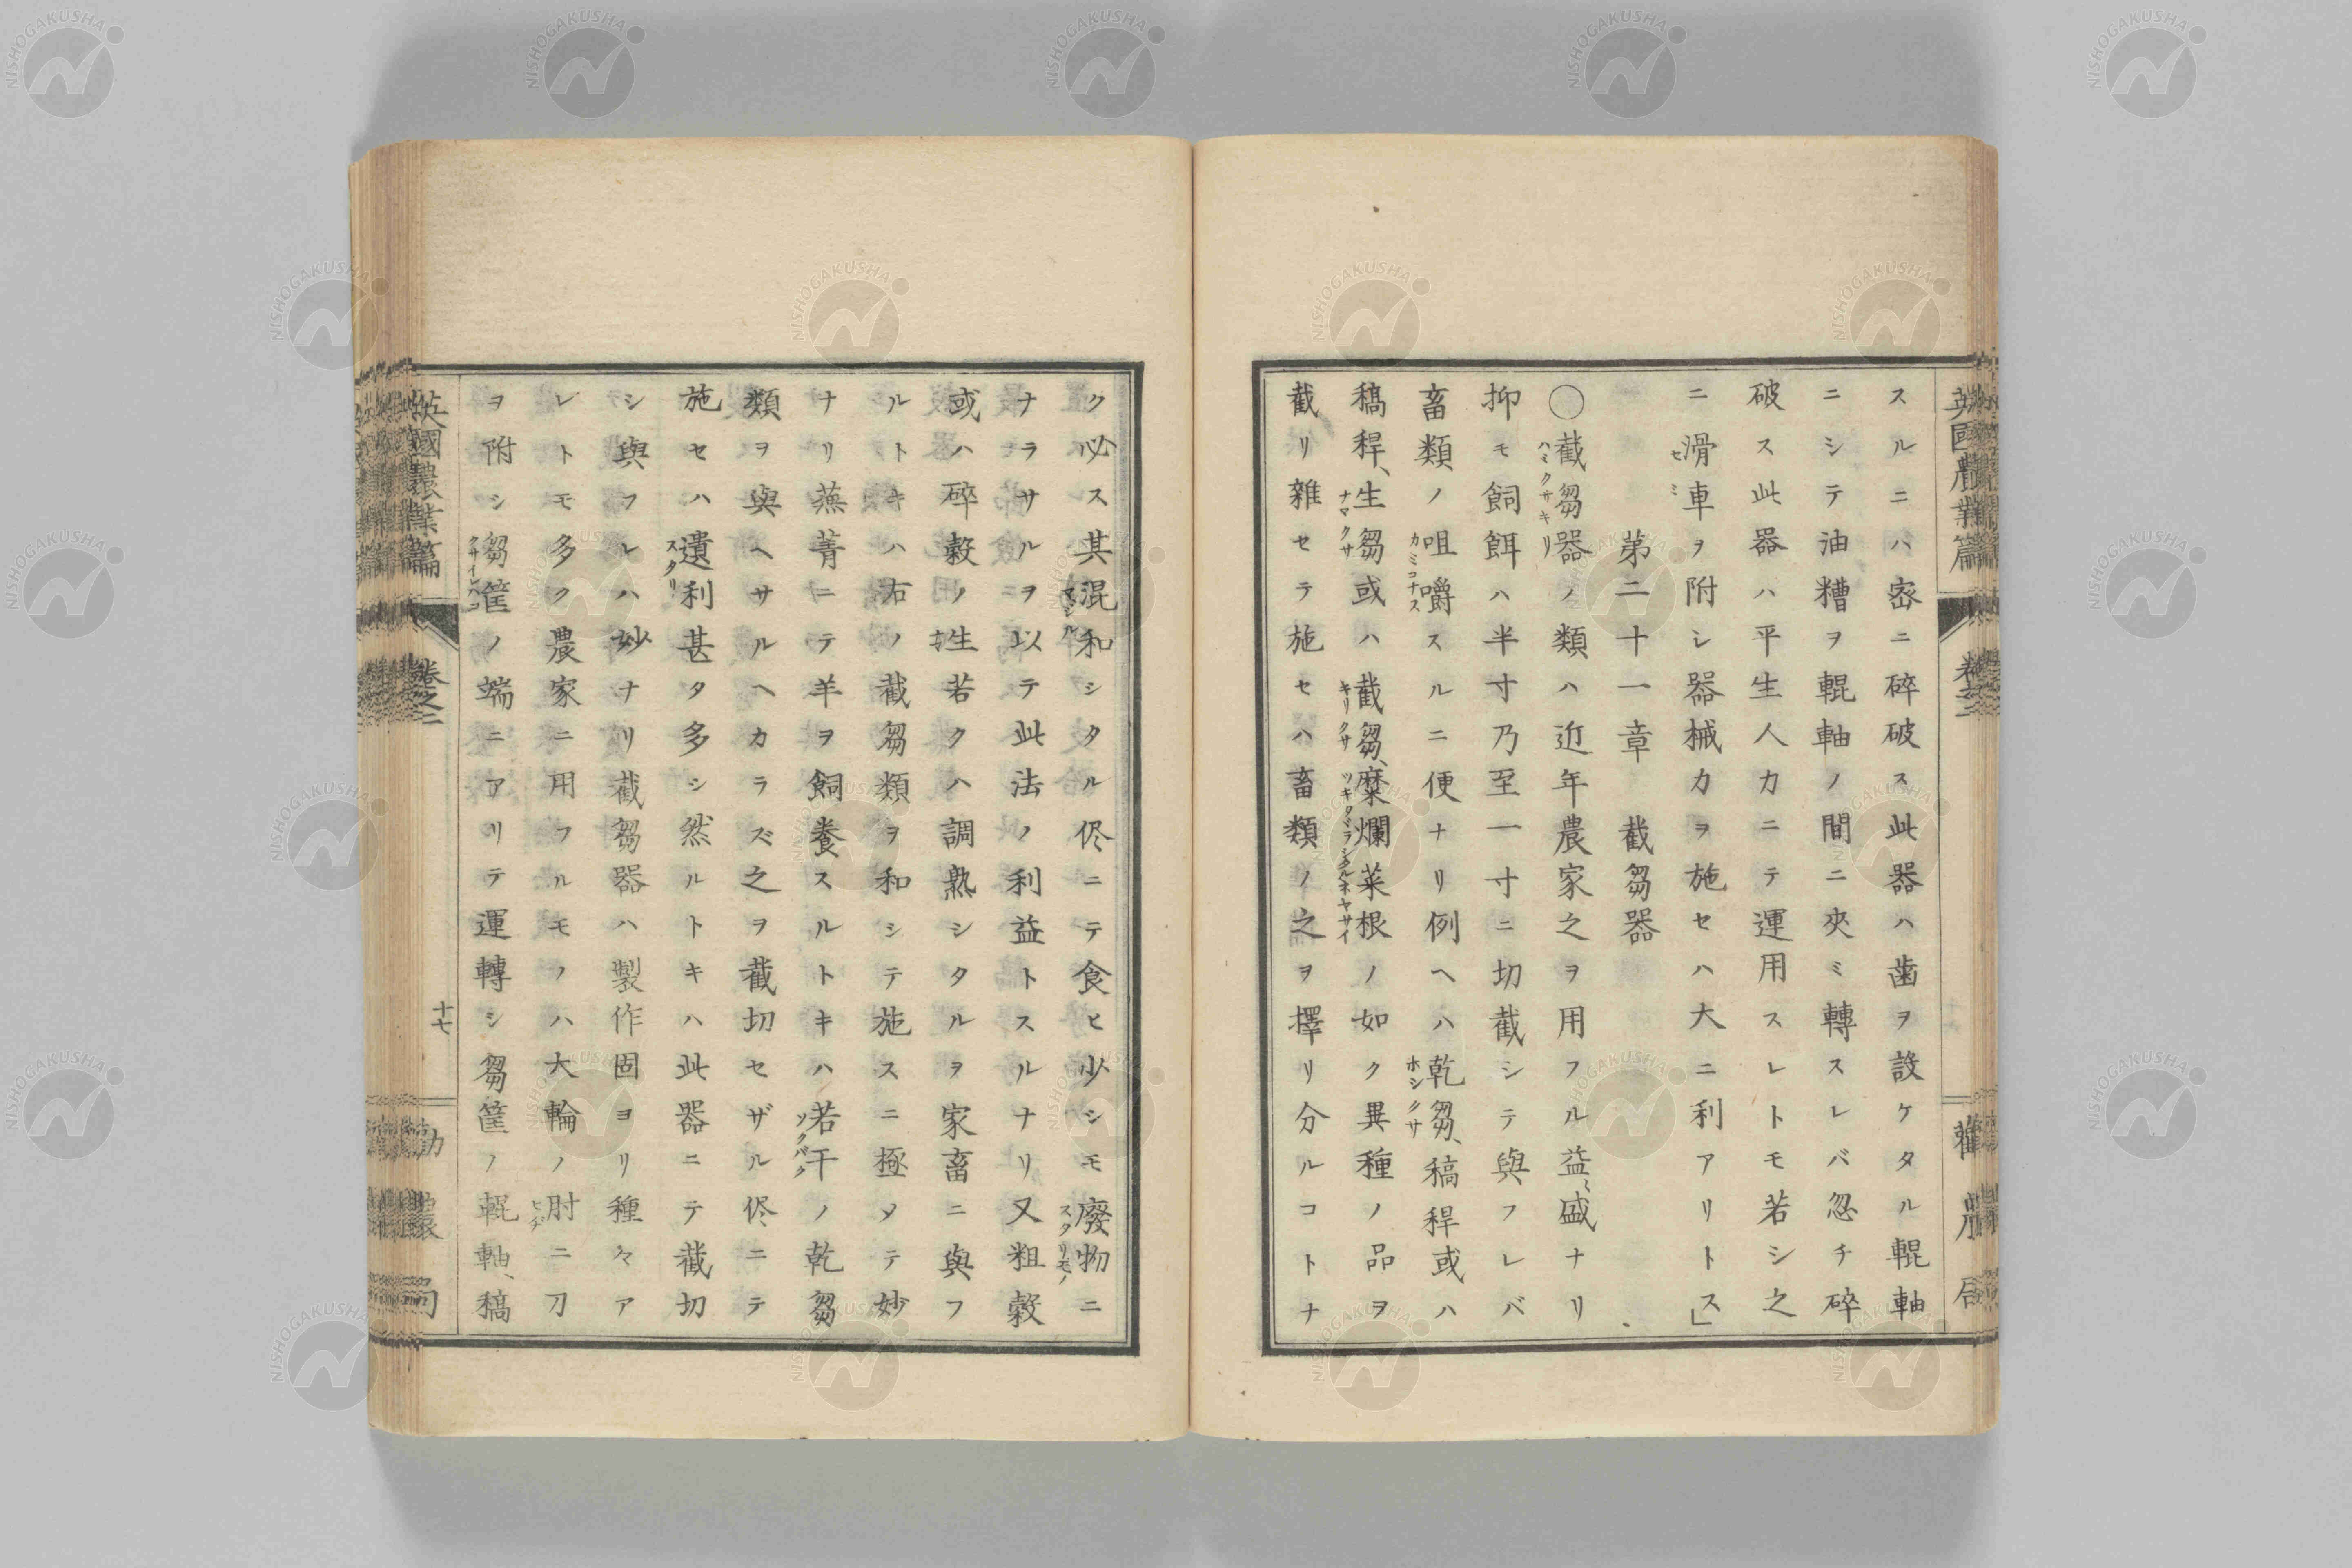 英國農業篇 卷之二
スルニハ密ニ碎破ス此器ハ齒ヲ設ケタル輥軸
ニシテ油糟ヲ輥軸ノ間ニ夾ミ轉スレバ忽チ碎
破ス此器ハ平生人力ニテ運用スレトモ若シ之
ニ滑車ヲ附シ器械力ヲ施セハ大ニ利アリトス」
セミ
第二十一章 截芻器
〇截芻器ノ類ハ近年農家之ヲ用フル益〻盛ナリ
ハミクサキリ
抑モ飼餌ハ半寸乃至一寸ニ切截シテ與フレバ
畜類ノ咀嚼スルニ便ナリ例ヘハ乾芻、稿稈或ハ
カミコナス ホシクサ
稿稈、生芻或ハ截芻、糜爛菜根ノ如ク異種ノ品ヲ
ナマクサ キリクサ
截リ雜セテ施セハ畜類ノ之ヲ擇リ分ルコトナ
ク必ス其混和シタル侭ニテ食ヒ少シモ廢物ニ
マシル スタリモノ
ナラサルヲ以テ此法ノ利益トスルナリ又粗穀
或ハ碎穀ノ生若クハ調熟シタルヲ家畜ニ與フ
ルトキハ右ノ截芻類ヲ和シテ施スニ極メテ妙
ナリ蕪菁ニテ羊ヲ飼養スルトキハ若干ノ乾芻
ソクバク
類ヲ與ヘサルヘカラズ之ヲ截切セザル侭ニテ
施セハ遺利甚タ多シ然ルトキハ此器ニテ截切
スタリ
シ與フレハ妙ナリ截芻器ハ製作固ヨリ種々ア
レトモ多ク農家ニ用フルモノハ大輪ノ肘ニ刀
ヒヂ
ヲ附シ芻筐ノ端ニアリテ運轉シ芻筐ノ輥軸、稿
英國農業篇 卷之二 十七 勸農局